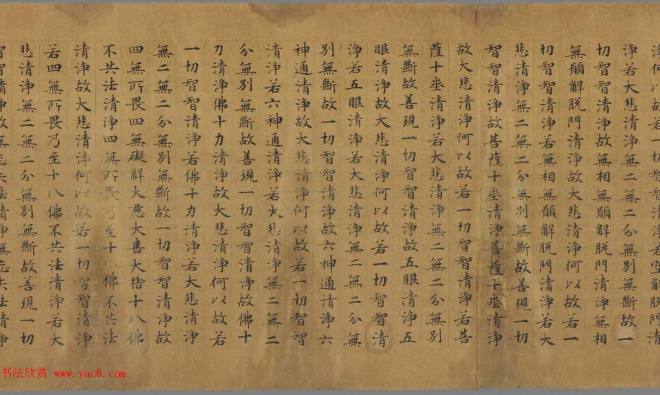 淨何以故若一切智智清淨若空解脫門清
淨若大悲清淨無二無二分無別無斷故一
切智智清淨故無相無願解脫門清淨無相
無願解脫門清淨故大悲清淨何以故若一
切智智清淨若無相無願解脫門清淨若大
悲清淨無二無二分無別無斷故善現一切
智智清淨故菩薩十埊清淨菩薩十埊清淨
故大悲清淨何以故若一切智智清淨若菩
薩十埊清淨若大悲清淨無二無二分無別
無斷故善現一切智智清淨故五眼清淨五
眼清淨故大悲清淨何以故若一切智智清
淨若五眼清淨若大悲清淨無二無二分無
別無斷故一切智智清淨故六神通清淨六
神通清淨故大悲清淨何以故若一切智智
清淨若六神通清淨若大悲清淨無二無二
分無別無斷故善現一切智智清淨故佛十
力清淨佛十力清淨故大悲清淨何以故若
一切智智清淨若佛十力清淨若大悲清淨
無二無二分無別無斷故一切智智清淨故
四無所畏四無礙解大慈大喜大捨十八佛
不共法清淨四無所畏乃至十八佛不共法
清淨故大悲清淨何以故若一切智智清淨
若四無所畏乃至十八佛不共法清淨若大
悲清淨無二無二分無別無斷故善現一切
智智清淨故無忘失法清淨無忘失法清淨
书法欣赏
www.yac8.com